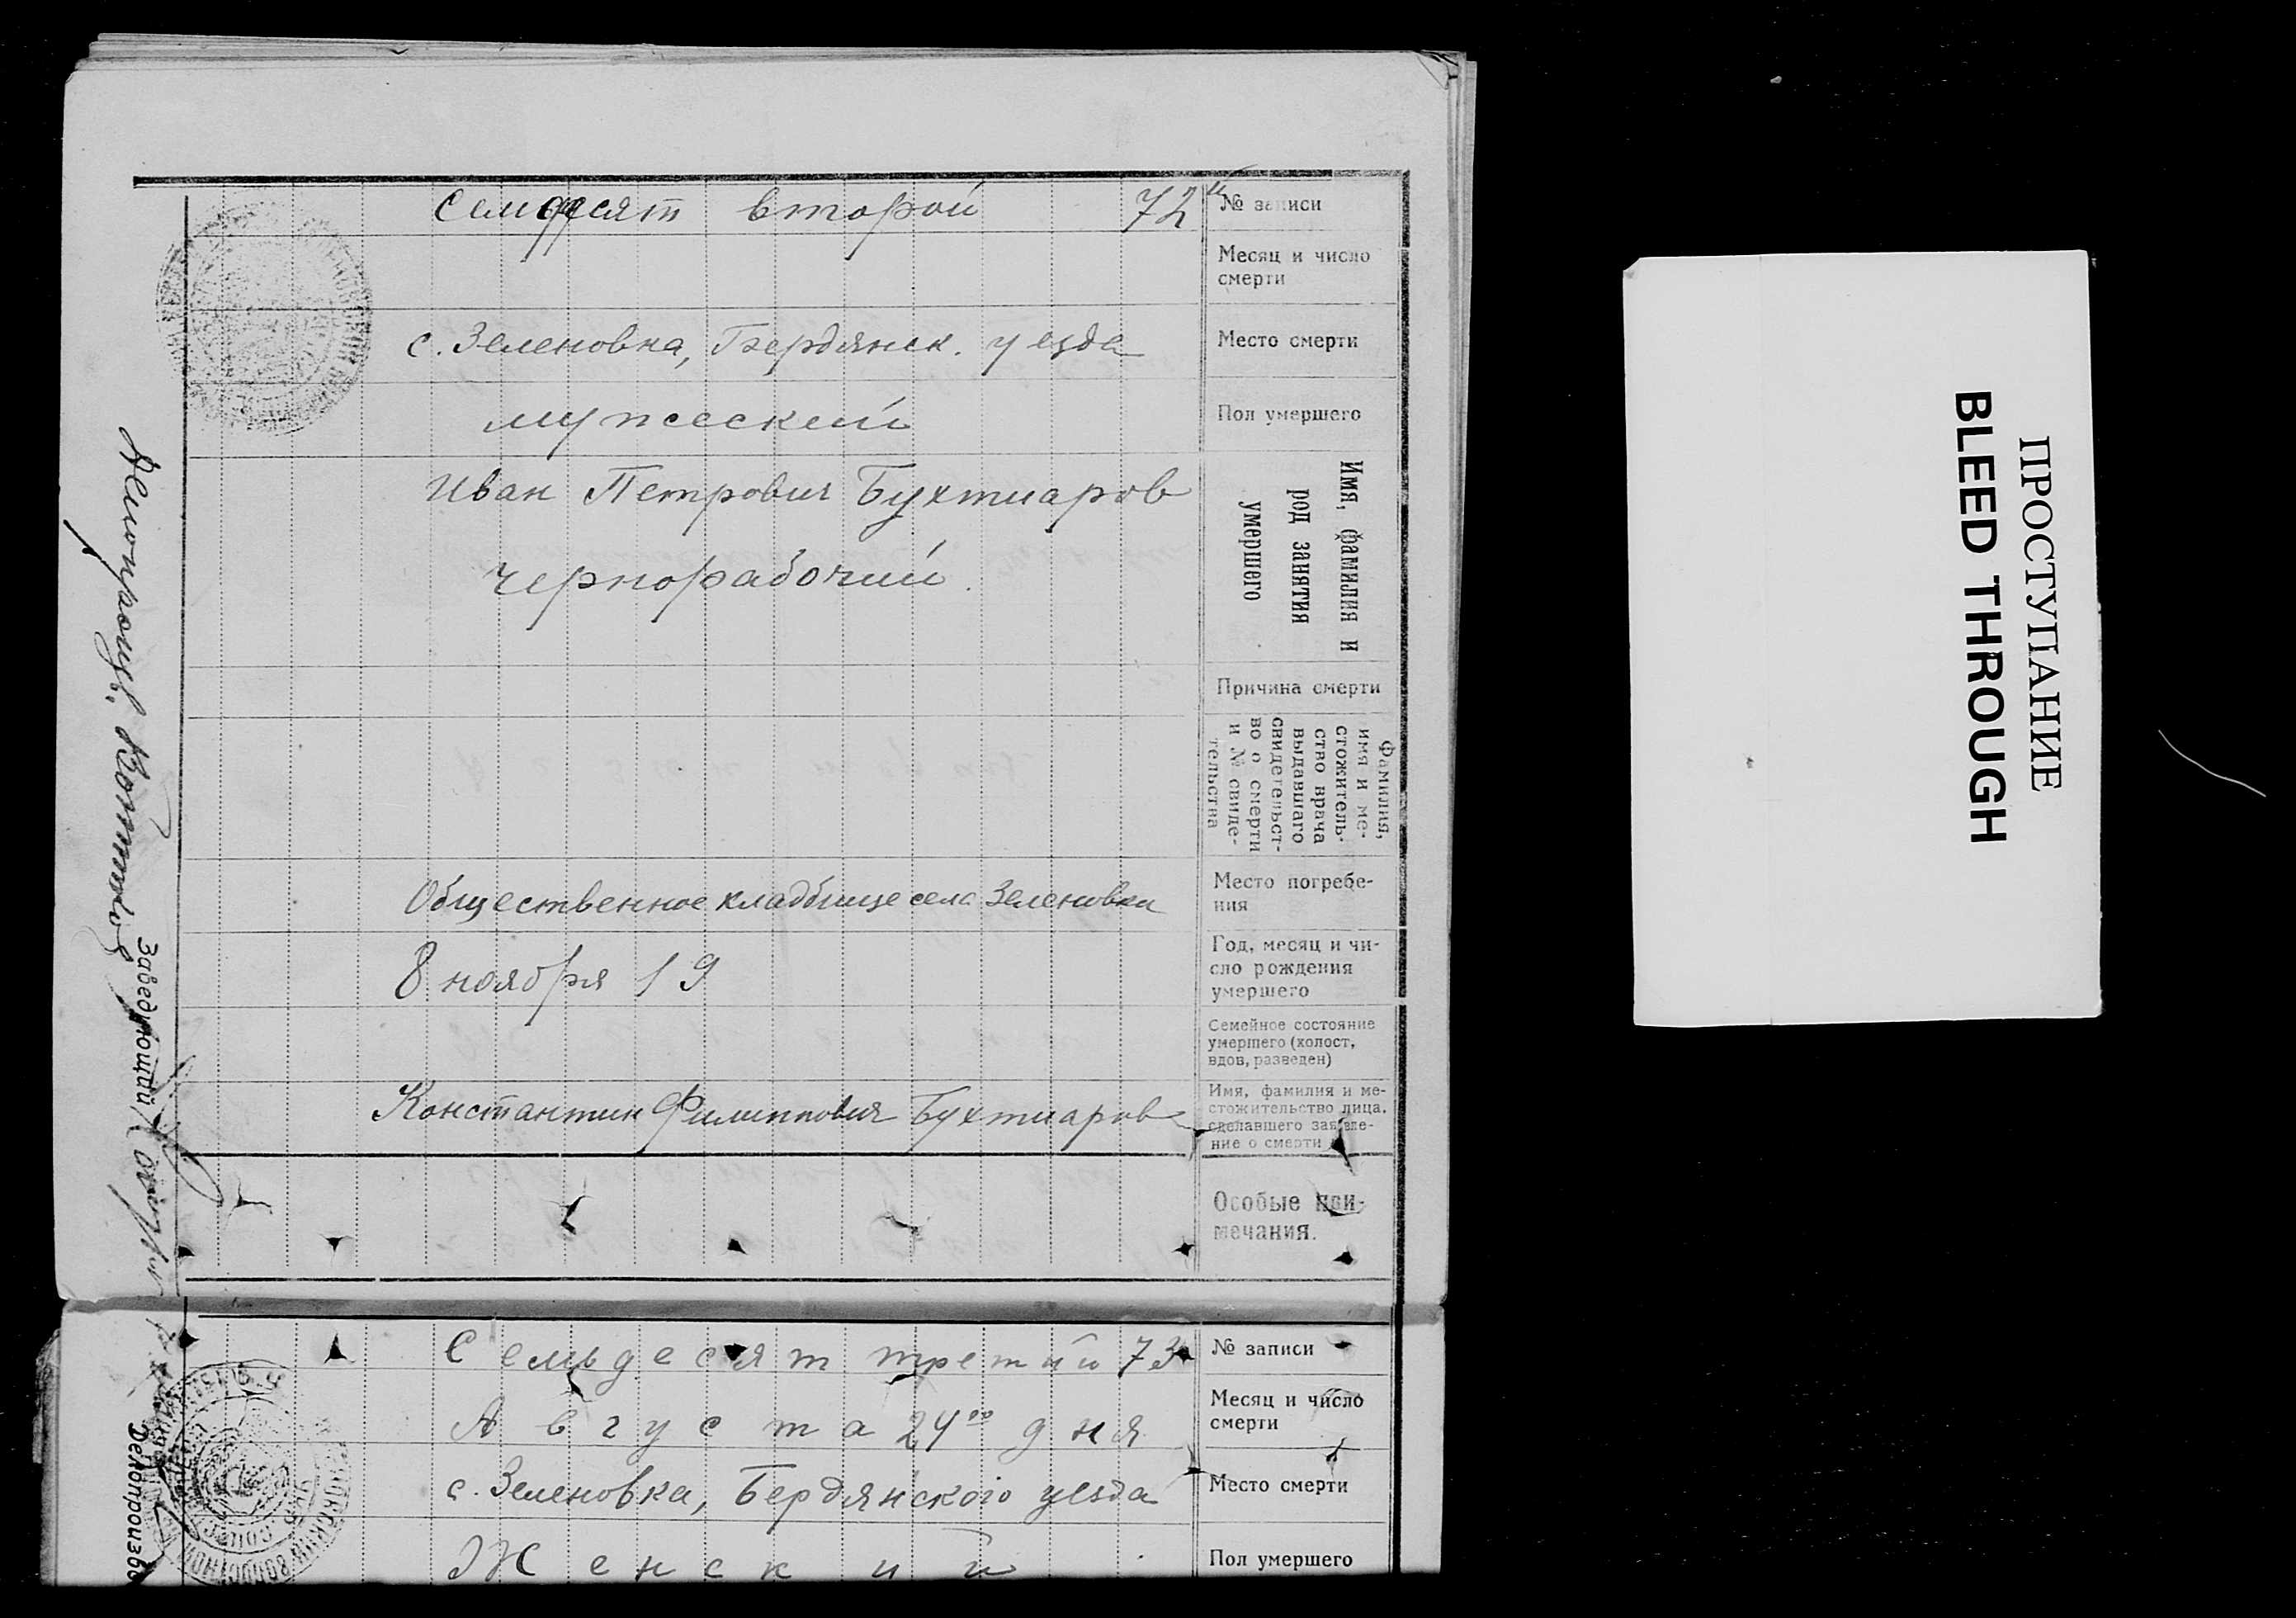 № записи
Семдесят второй 72й
Месяц и число
смерти
Место смерти
с. Зеленовка, Бердянск. уезда
Пол умершего
мужеский
Имя, фамилия и
род занятия
умершего
Иван Петрович Бухтиаров
чернорабочий.
Причина смерти
Фамилия,
имя и ме-
стожитель-
ство врача
выдавшаго
свидетельст-
во о смерти
и № свиде-
тельства
Место погребе-
ния
Общественное кладбище села Зеленовки
Год, месяц и чи-
сло рождения
умершего
8 ноября 19
Семейное состояние
умершего (холост,
вдов, разведен)
Имя, фамилия и ме-
стожительство лица,
сделавшего заявле-
ние о смерти
Константин Филиппович Бухтиаров
Особые при-
мечания.
Заведующий
№ записи
Семьдесят третий 73
Месяц и число
смерти
Августа 24го дня
Место смерти
с. Зеленовка, Бердянского уезда
Пол умершего
Женский
Делопроизво
ПРОСТУПАНИЕ
BLEED THROUGH